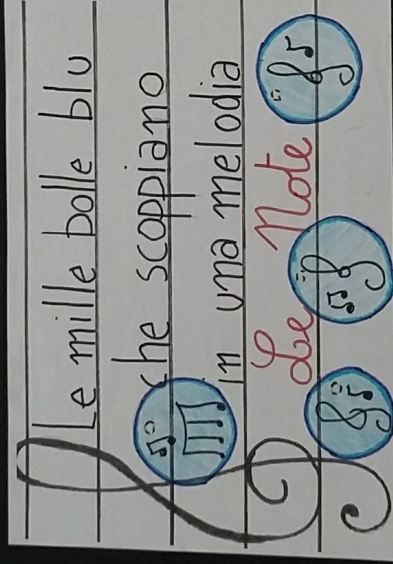 Le mille bolle blu
che scoppiano
in una melodia
Le Note